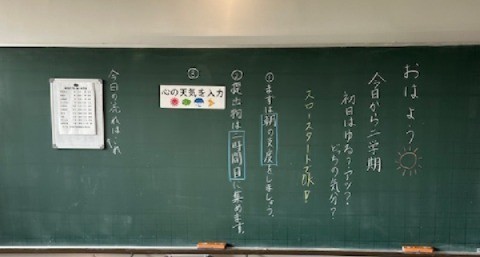 おはよう
今日から二学期
初日はゆる？アツ？
どっちの気分？
スロースタートでOK！
①まずは朝の支度をしましょう。
②提出物は二時間目に集めます。
③
心の天気を入力
今日の流れはこれ